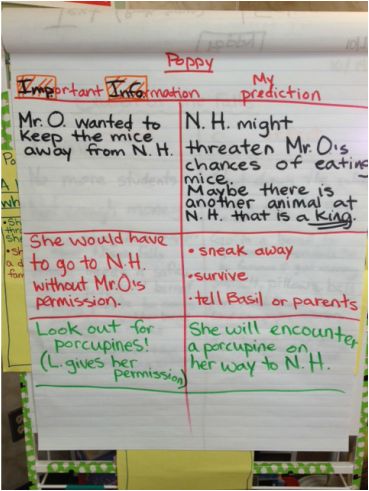 Poppy
Important Information
My
prediction
Mr. O. wanted to
keep the mice
away from N.H.
N.H. might
threaten Mr. O's
chances of eating
mice.
Maybe there is
another animal at
N.H. that is a king.
She would have
to go to N.H.
without Mr. O's
permission.
• sneak away
• survive
• tell Basil or parents
Look out for
porcupines!
(L. gives her
permission)
She will encounter
a porcupine on
her way to N.H.